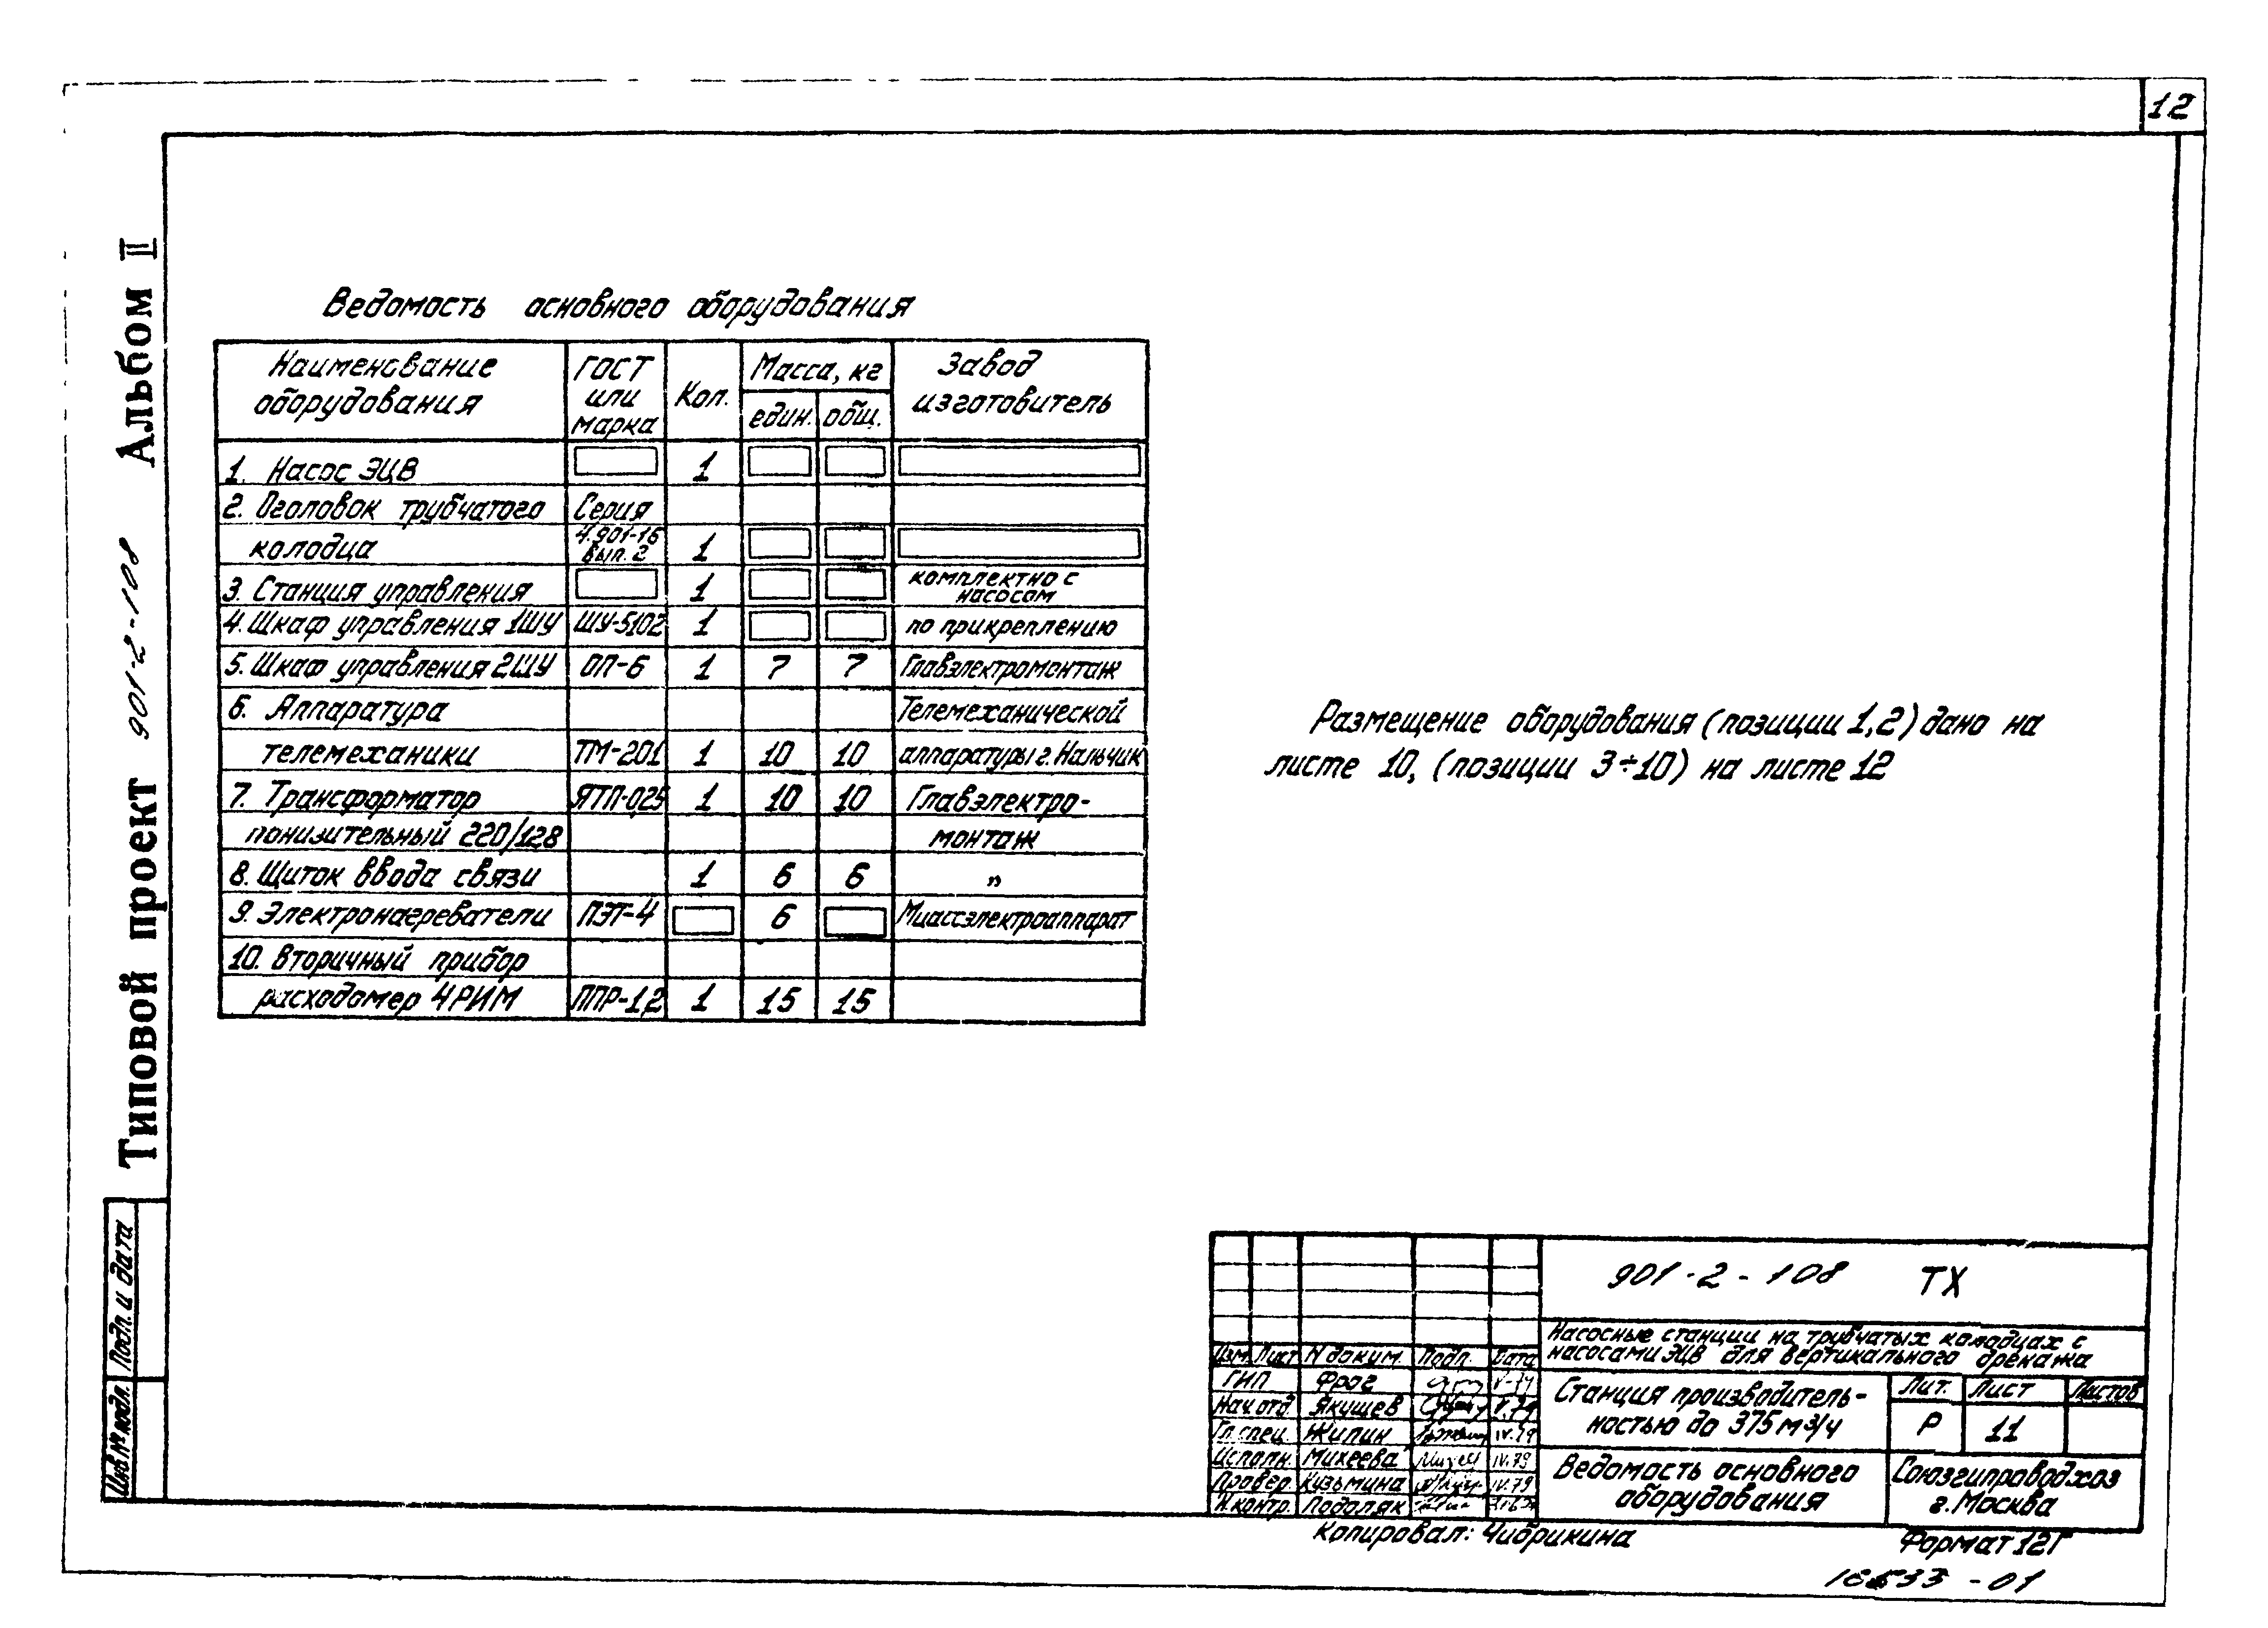 12
Альбом II
Типовой проект 901-2-108
Ведомость основного оборудования
Наименование оборудования | ГОСТ или марка | Кол. | Масса, кг | Завод изготовитель
един. | общ.
1. Насос ЭЦВ 1
2. Оголовок трубчатого Серия
колодца 4.901-16 вып. 2 1
3. Станция управления 1 комплектно с насосом
4. Шкаф управления 1ШУ ШУ-5102 1 по прикреплению
5. Шкаф управления 2ШУ ОП-6 1 7 7 Главэлектромонтаж
6. Аппаратура Телемеханической
телемеханики ТМ-201 1 10 10 аппаратуры г. Нальчик
7. Трансформатор ЯТП-025 1 10 10 Главэлектро-
понизительный 220/12В монтаж
8. Щиток ввода связи 1 6 6 "
9. Электронагреватели ПЭТ-4 6 Миассэлектроаппарат
10. Вторичный прибор
расходомер 4РИМ ППР-1,2 1 15 15
Размещение оборудования (позиции 1,2) дано на
листе 10, (позиции 3÷10) на листе 12
Подп. и дата
Инв № подл.
901-2-108 ТХ
Насосные станции на трубчатых колодцах с
насосами ЭЦВ для вертикального дренажа
Изм. Лист N докум. Подп. Дата
ГИП Фрог
Нач. отд. Якушев
Гл. спец. Жилин IV.79
Исполн. Михеева IV.79
Провер. Кузьмина IV.79
Н.контр. Подоляк
Станция производитель-
ностью до 375 м³/ч
Лит. Лист Листов
Р 11
Ведомость основного
оборудования
Союзгипроводхоз
г. Москва
Копировал: Чибрикина
Формат 12Г